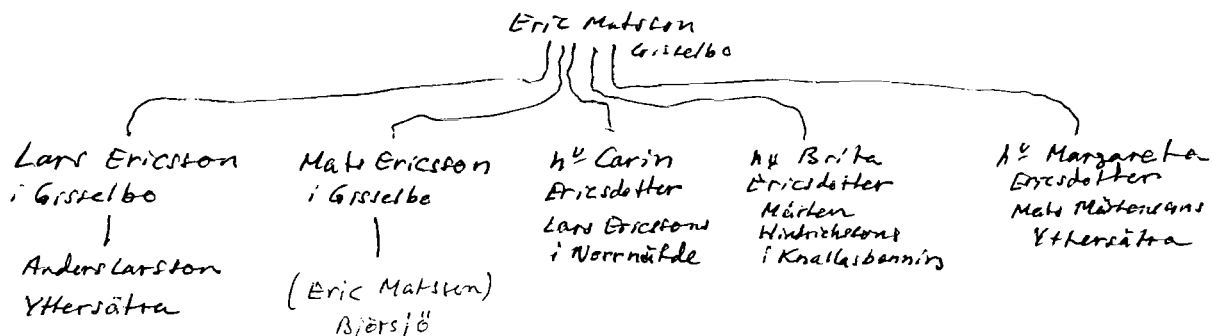 Eric Matsson
Gisselbo
Lars Ericsson
i Gisselbo
Anders Larsson
Yttersätra
Mats Ericsson
i Gisselbo
(Eric Matsson)
Björsjö
hu Carin
Ericsdotter
Lars Ericssons
i Norrnäfde
hu Brita
Ericsdotter
Mårten
Hindrichssons
i Knallasbenning
hu Margareta
Ericsdotter
Mats Mårtenssons
Yttersätra